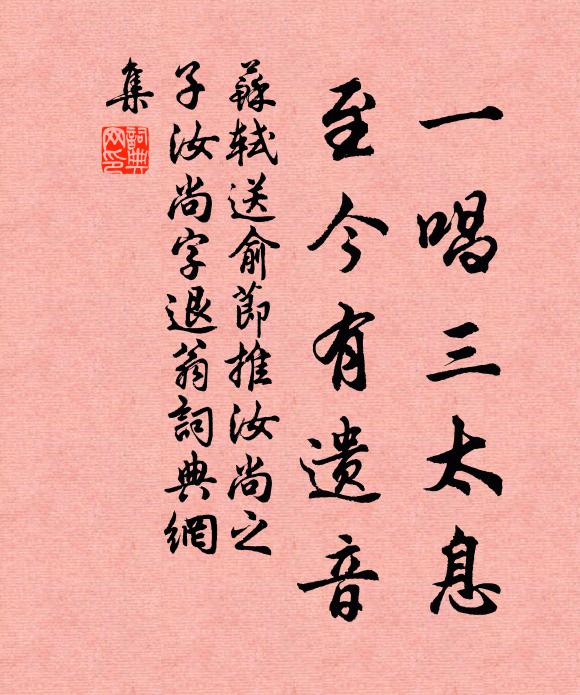 一唱三太息
至今有遗音
蘇軾送俞節推汝尚之
子汝尚字退翁詞典網
集
詞典網印